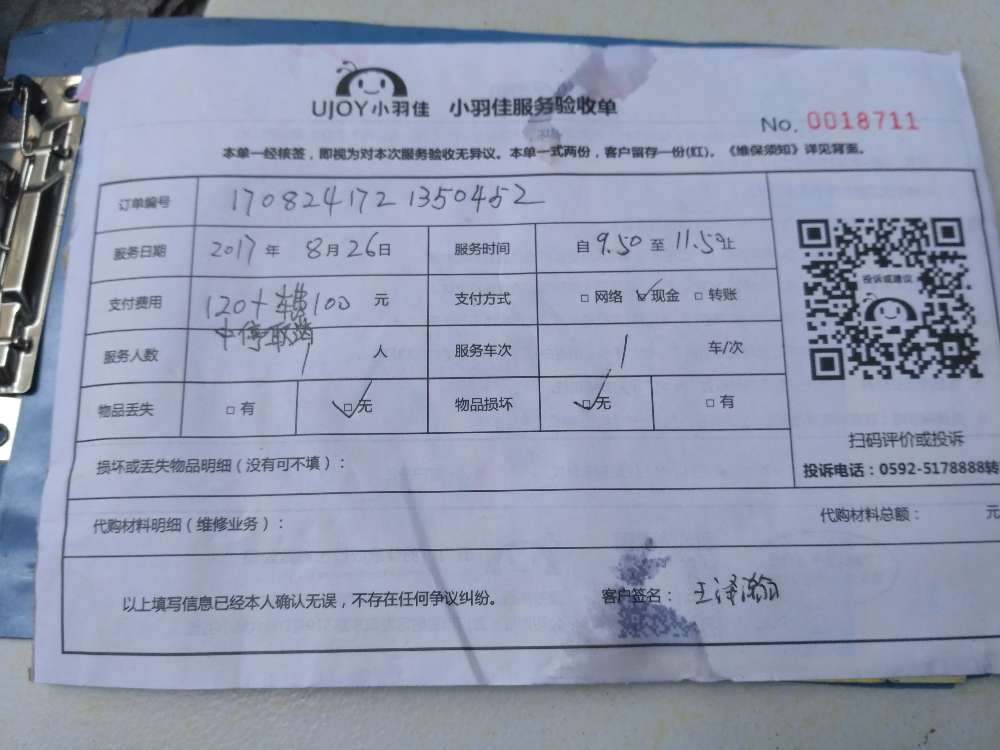 UJOY小羽佳 小羽佳服务验收单
No. 0018711
本单一经核签，即视为对本次服务验收无异议。本单一式两份，客户留存一份(红)。《维保须知》详见背面。
订单编号 170824172 1350452
服务日期 2017年 8月26日 服务时间 自9.50至11.50止
支付费用 120+ 100 元 支付方式 □网络 ☑现金 □转账
中停取消
服务人数 1 人 服务车次 1 车/次
物品丢失 □有 ☑无 物品损坏 ☑无 □有
投诉或建议
扫码评价或投诉
投诉电话：0592-5178888转
损坏或丢失物品明细（没有可不填）：
代购材料明细（维修业务）： 代购材料总额： 元
以上填写信息已经本人确认无误，不存在任何争议纠纷。 客户签名：王泽瀚